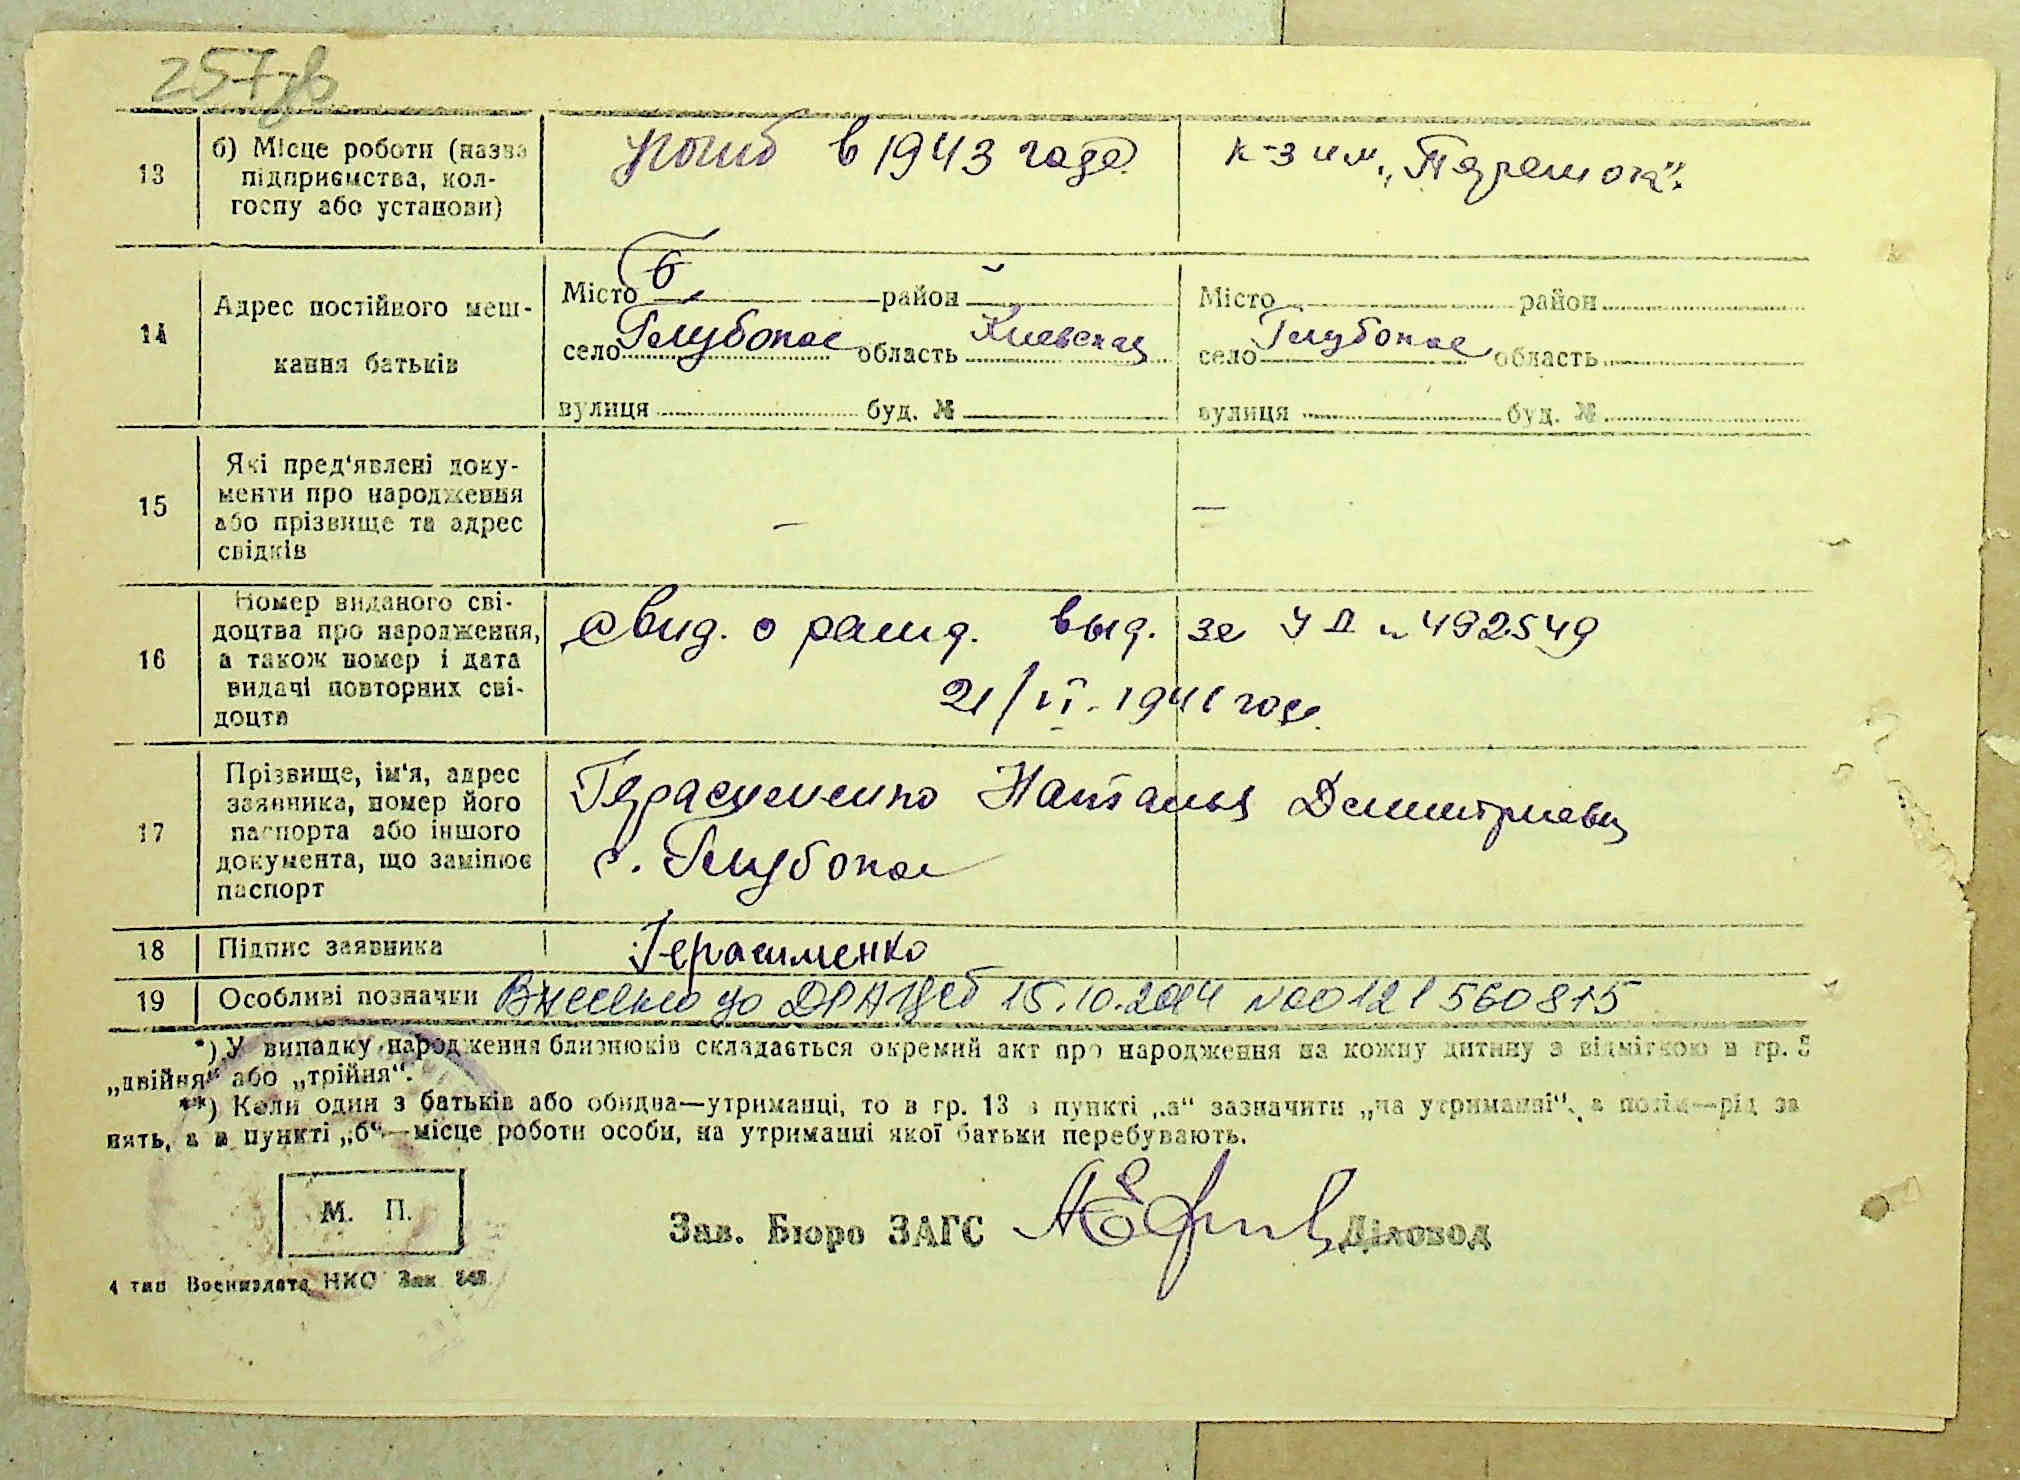 257зв
13 б) Місце роботи (назва підприємства, колгоспу або установи) погиб в 1943 годе к-з им.
14 Адрес постійного мешкання батьків
Місто Б. район Місто район
село Глубокое область Киевская село Глубокое область
вулиця буд. № вулиця буд. №
15 Які пред‘явлені документи про народження або прізвище та адрес свідків — —
16 Номер виданого свідоцтва про народження, а також номер і дата видачі повторних свідоцтв
свид. о рожд. выд. за УД № 492549
21/VI. 1941 года
17 Прізвище, ім‘я, адрес заявника, номер його паспорта або іншого документа, що замінює паспорт
Герасименко Наталья Дмитриевн
с. Глубокое
18 Підпис заявника Герасименко
19 Особливі позначки Внесено до ДРАЦСГ 15.10.2014 №00121560815
*) У випадку народження близнюків складається окремий акт про народження на кожну дитину з відміткою в гр. 5
„двійня“ або „трійня“.
**) Коли один з батьків або обидва—утриманці, то в гр. 13 в пункті „а“ зазначити „на утриманні“, а потім—рід за
нять, а в пункті „б“—місце роботи особи, на утриманні якої батьки перебувають.
М. П.
Зав. Бюро ЗАГС Діловод
4 тип Воениздата НКО Зак